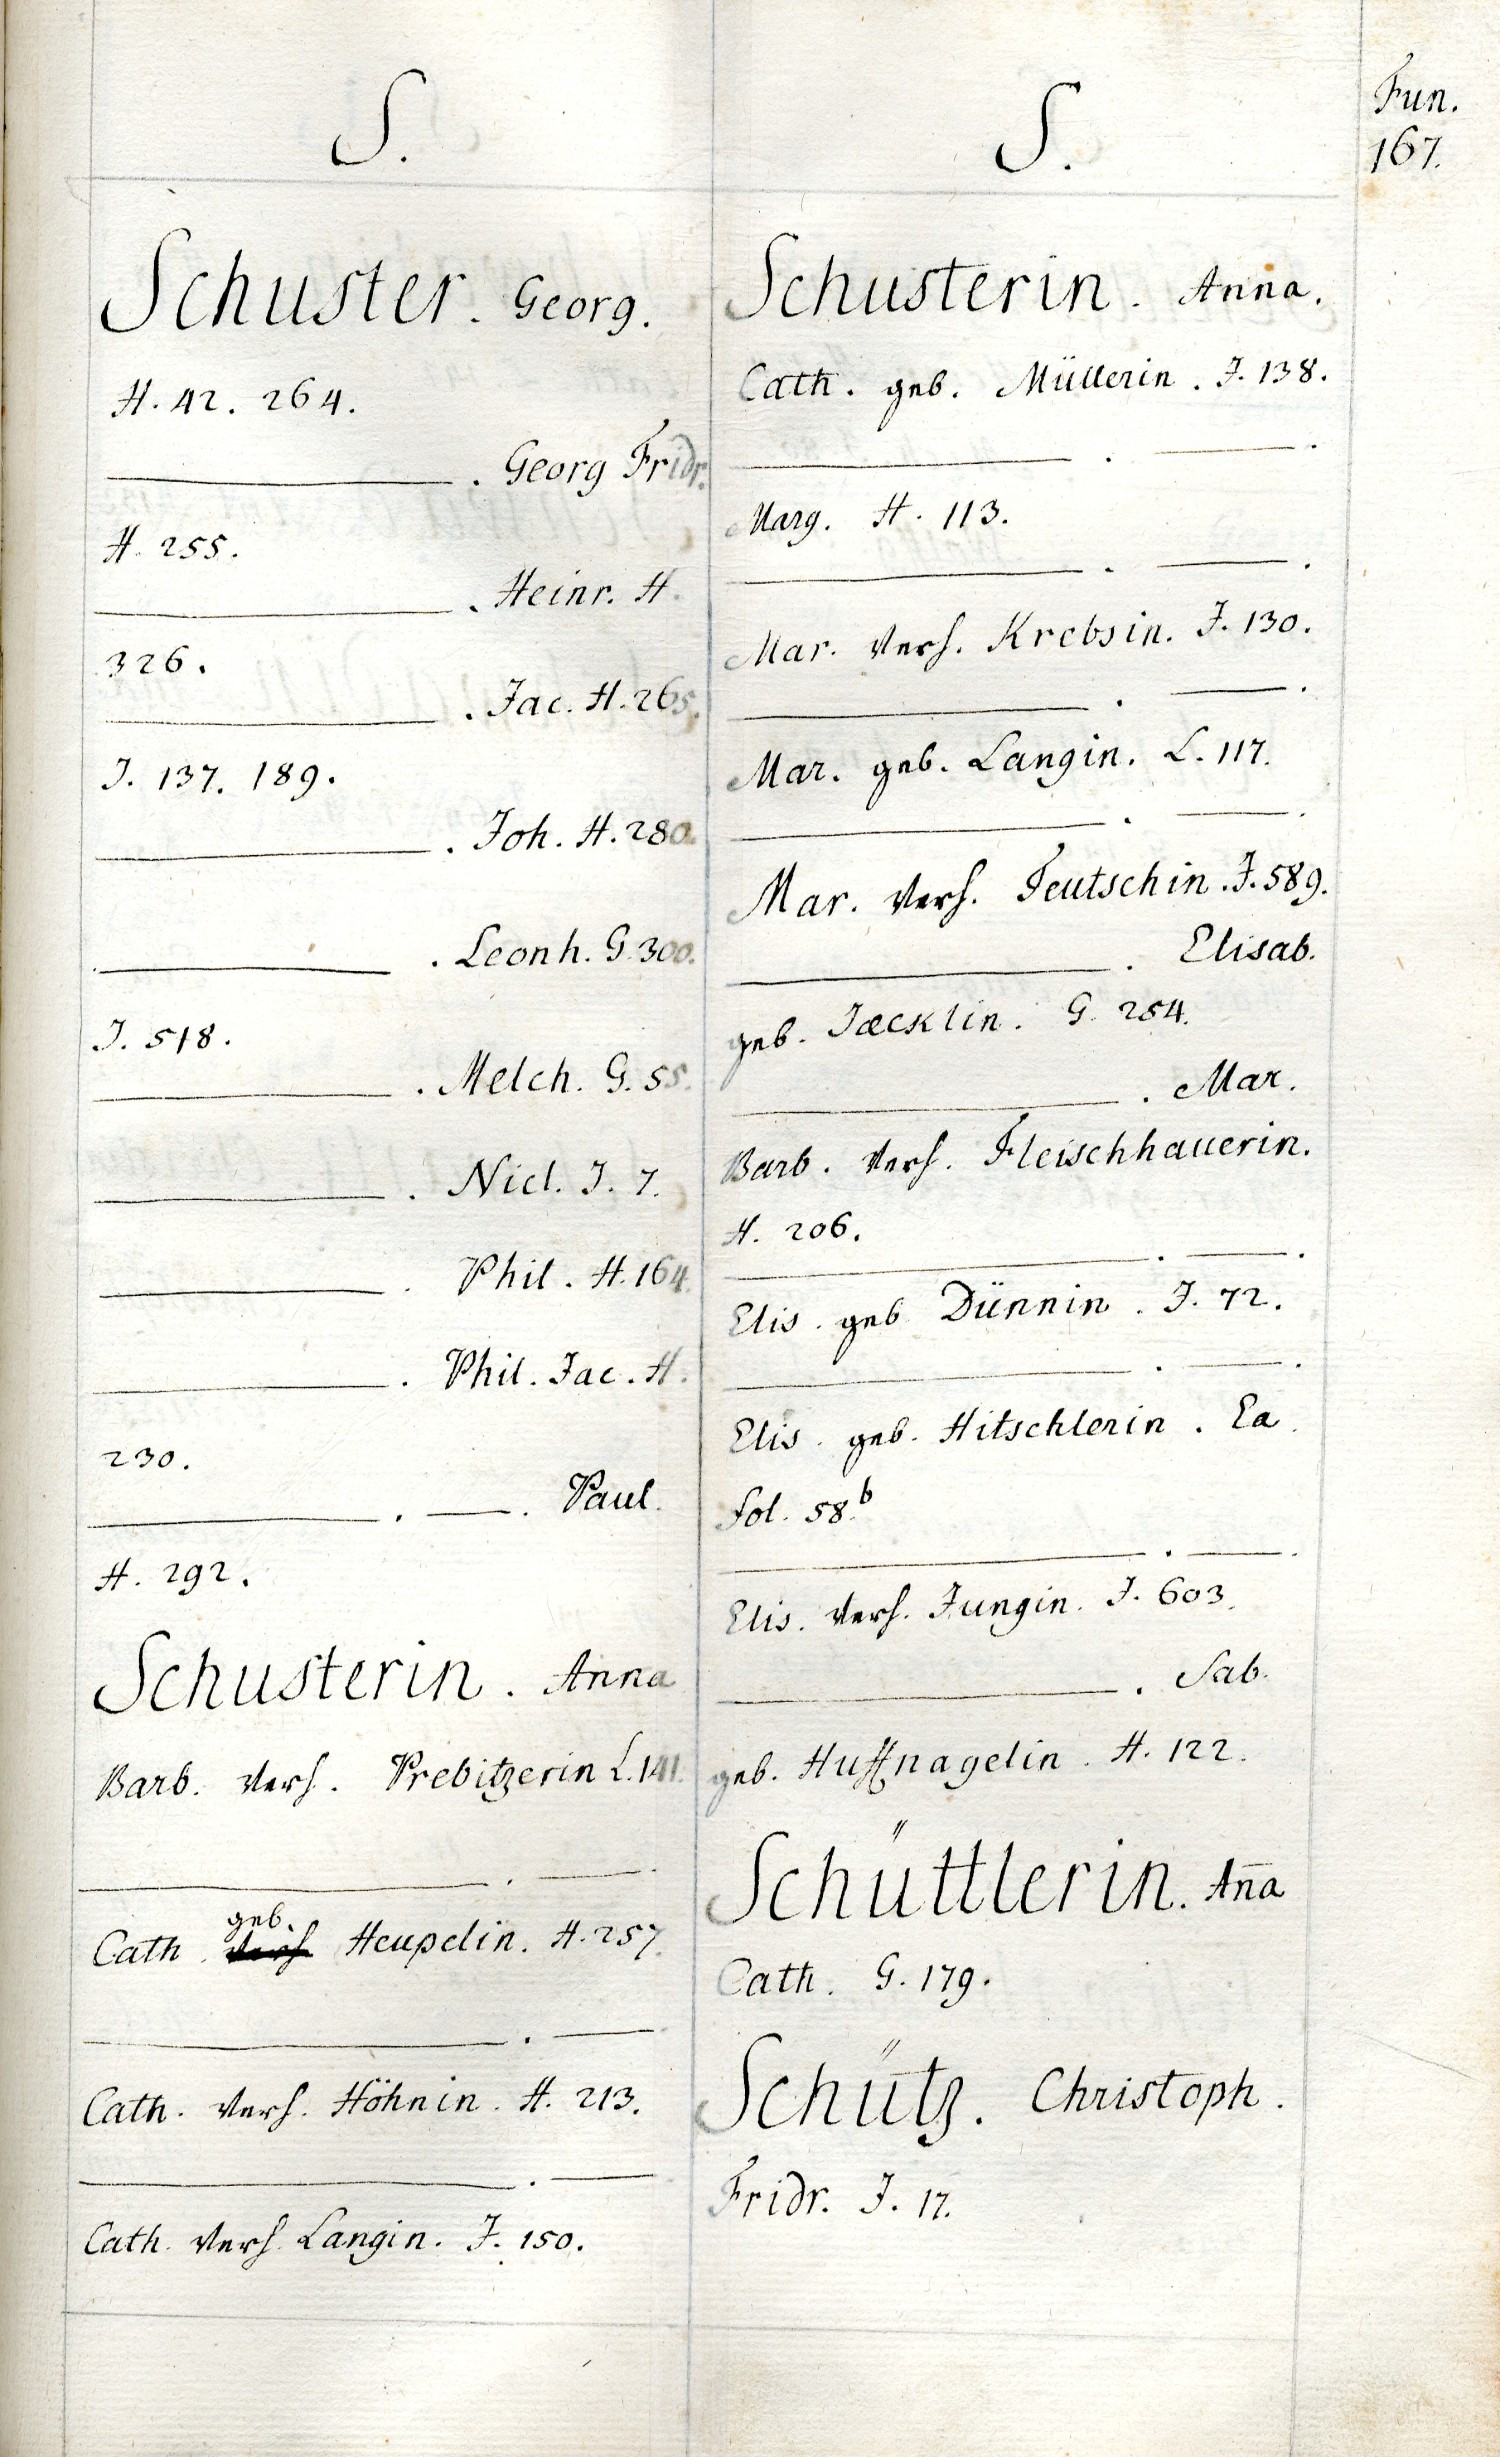 Fun.
167.
S.
Schuster. Georg.
H. 42. 264.
———. Georg Fridr.
H. 255.
———. Heinr. H.
326.
———. Jac. H. 265.
J. 137. 189.
———. Joh. H. 280.
———. Leonh. G. 300.
J. 518.
———. Melch. G. 55.
———. Nicl. J. 7.
———. Phil. H. 164.
———. Phil. Jac. H.
230.
———. —. Paul.
H. 292.
Schusterin. Anna
Barb. verh. Prebitzerin L. 141.
———. ———.
geb.
Cath. verh Heupelin. H. 257.
———. ———.
Cath. verh. Höhnin. H. 213.
———. ———.
Cath. verh. Langin. J. 150.
S.
Schusterin. Anna.
Cath. geb. Müllerin. J. 138.
———. ———.
Marg. H. 113.
———. ———.
Mar. verh. Krebsin. J. 130.
———. ———.
Mar. geb. Langin. L. 117.
———. ———.
Mar. verh. Teutschin. J. 589.
———. Elisab.
geb. Jæcklin. G. 254.
———. Mar.
Barb. verh. Fleischhauerin.
H. 206.
———. ———.
Elis. geb. Dünnin. J. 72.
———. ———.
Elis. geb. Hitschlerin. Ea.
fol. 58.b
———. ———.
Elis. verh. Jungin. J. 603.
———. Sab.
geb. Huffnagelin. H. 122.
Schüttlerin. Ana
Cath. G. 179.
Schütz. Christoph.
Fridr. J. 17.